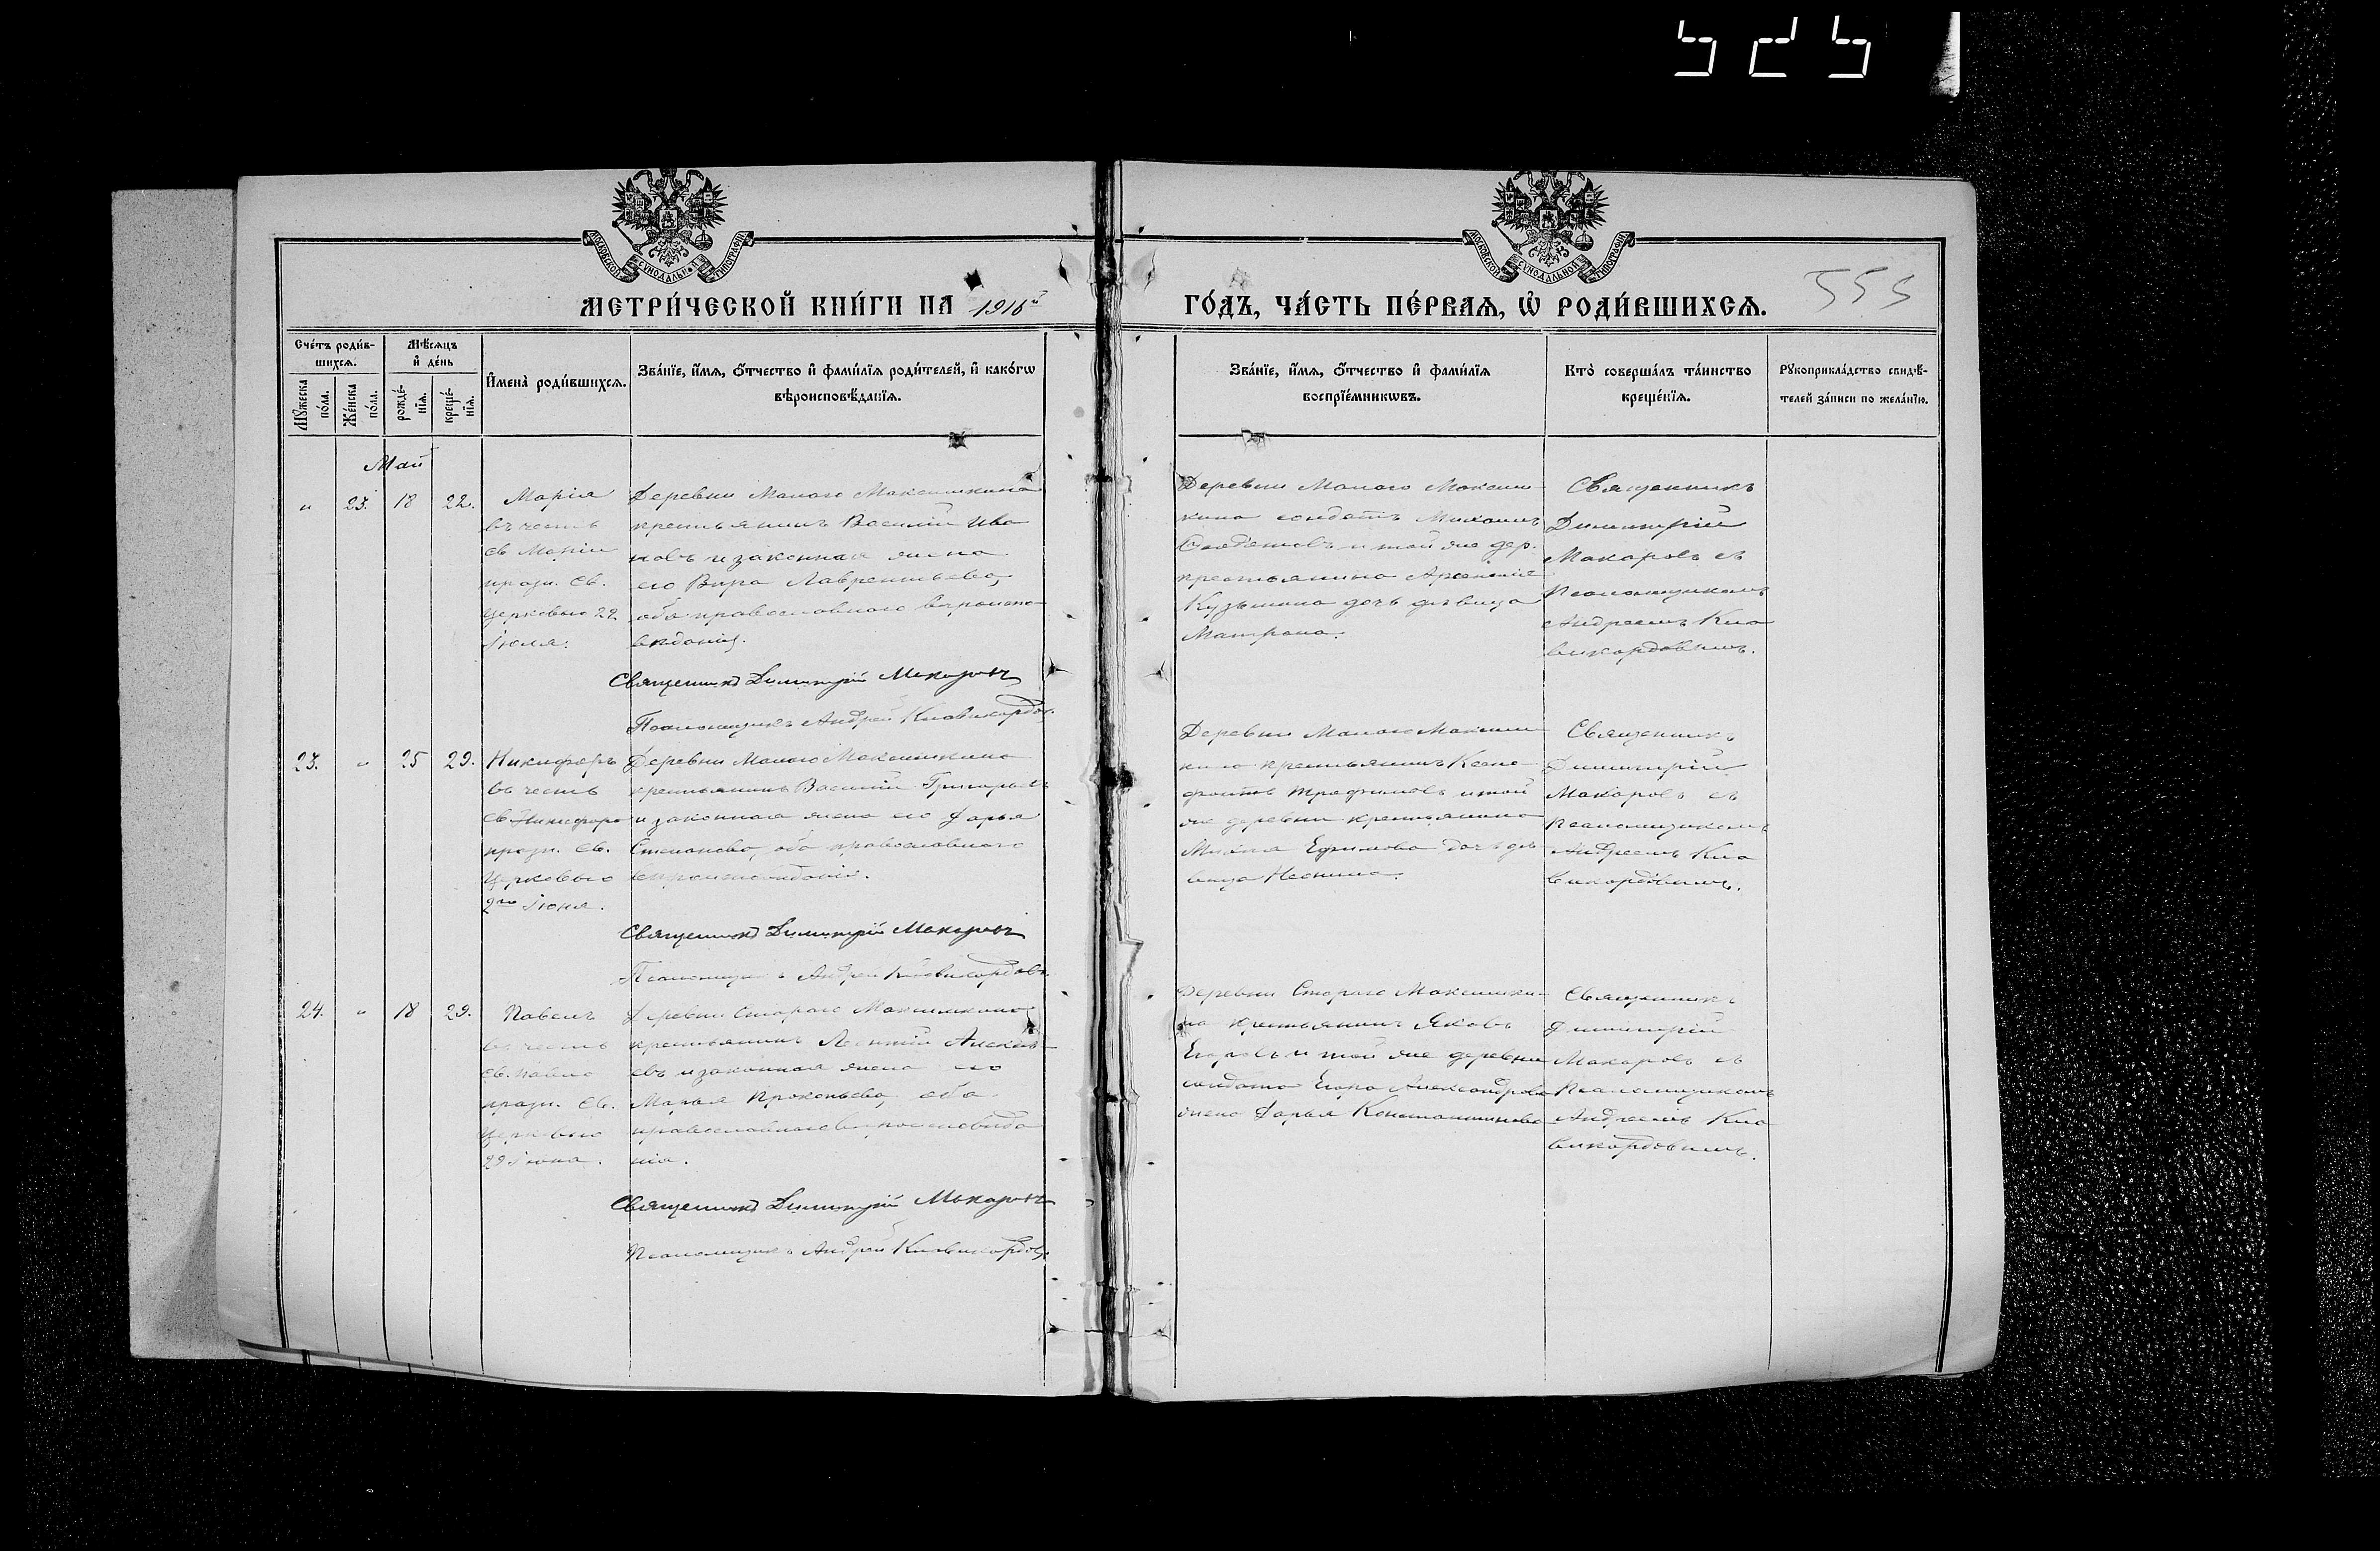 525
МОСКОВСКОЙ СѴНОДАЛЬНОЙ ТИПОГРАФІИ
МОСКОВСКОЙ СѴНОДАЛЬНОЙ ТИПОГРАФІИ
МЕТРИ́ЧЕСКОЙ КНИ́ГИ НА 1916й
ГО́ДЪ, ЧА́СТЬ ПЕ́РВАѦ, Ѡ҆ РОДИ́ВШИХСѦ.
555
Сче́тъ роди́в-
шихсѧ.
Мѣ́сѧцъ
и҆ де́нь
Мꙋ́жеска
по́ла.
Же́нска
по́ла.
рожде́-
нїѧ.
креще́-
нїѧ.
И҆мена̀ роди́вшихсѧ.
Зва́нїе, и҆́мѧ, ѻ҆́тчество и҆ фами́лїѧ роди́телей, и҆ како́гѡ
вѣроисповѣ́данїѧ.
Зва́нїе, и҆́мѧ, ѻ҆́тчество и҆ фами́лїѧ
воспрїе́мникѡвъ.
Кто̀ соверша́лъ та́инство
креще́нїѧ.
Рꙋкоприкла́дство свидѣ́-
телей за́писи по жела́нїю.
Май
" 23. 18 22.
Марія
въ честь
св Маріи
празн. св.
церковью 22
Іюля.
Деревни Малаго Максимкина
крестьянинъ Василій Ива
новъ и законная жена
его Вѣра Лаврентьева,
оба православнаго вѣроиспо-
вѣданія.
Священникъ Димитрій Макаровъ
Псаломщикъ Андрей Клавикордовъ.
Деревни Малаго Максим-
кина солдатъ Михаилъ
и той же дер.
крестьянина Арсенія
Кузьмина дочь дѣвица
Матрона.
Священникъ
Димитрій
Макаровъ съ
Псаломщикомъ
Андреемъ Кла
викордовымъ.
23. " 25 29.
Никифоръ
въ честь
св Никифора
празн. св.
Церковью
2го Іюня.
Деревни Малаго Максимкина
крестьянинъ Василій Григорьевъ
и законная жена его Дарья
Степанова, оба православнаго
вѣроисповѣданія.
Священникъ Димитрій Макаровъ
Псаломщикъ Андрей Клавикордовъ.
Деревни Малаго Максим-
кина крестьянинъ Ксено
фонтъ Трофимовъ и той
же деревни крестьянина
Ефимова дочь дѣ-
вица
Священникъ
Димитрій
Макаровъ съ
Псаломщикомъ
Андреемъ Кла
викордовымъ.
24. " 18 29.
Павелъ
въ честь
св. Павла
празн. св.
Церковью
29 Іюня.
Деревни Стараго Максимкина
крестьянинъ Леонтій Алексѣ-
евъ и законная жена его
Марья Прокопьева, оба
православнаго вѣроисповѣда
нія.
Священникъ Димитрій Макаровъ
Псаломщикъ Андрей Клавикордовъ.
Деревни Стараго Максимки-
на крестьянинъ Яковъ
Егоровъ и той же деревни
солдата Егора Александрова
жена Дарья Константинова
Священникъ
Димитрій
Макаровъ съ
Псаломщикомъ
Андреемъ Кла
викордовымъ.